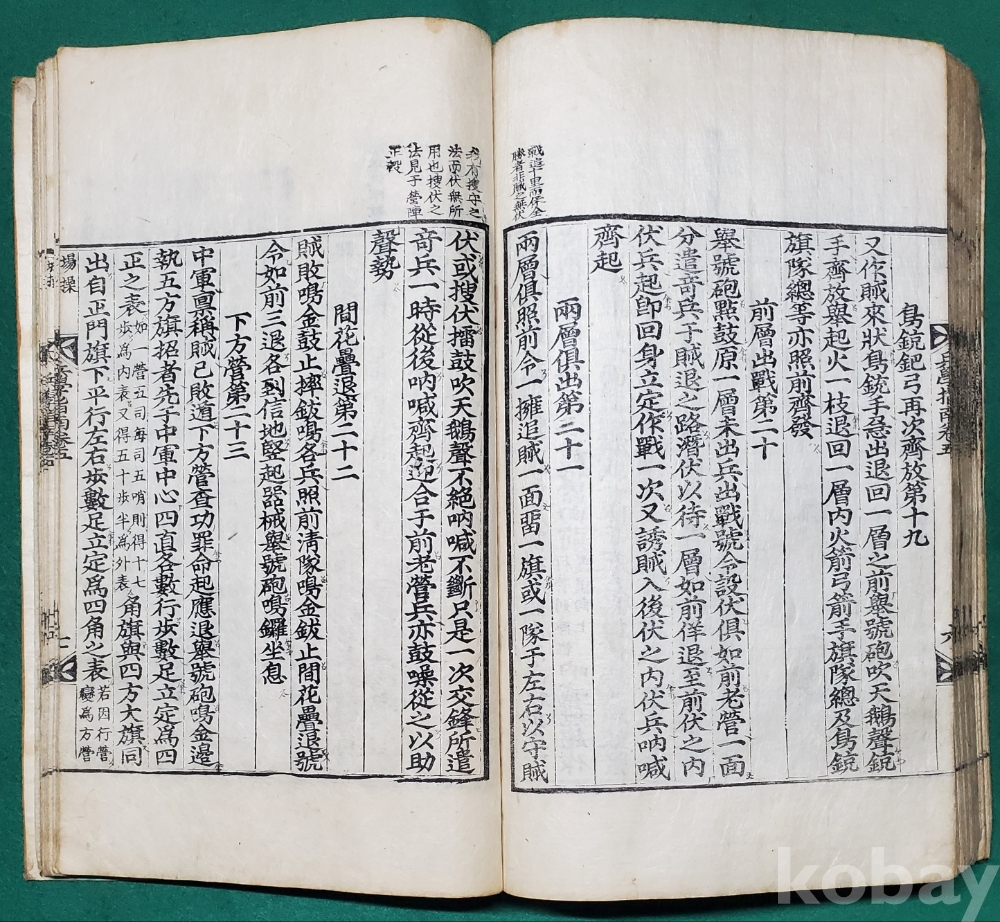 鳥銃鈀弓再次齊放第十九
又作賊來狀鳥銃手急出退回一層之前舉號砲吹天鵝聲銃
手齊放舉起火一枝退回一層內火箭弓箭手旗隊總及鳥銃
旗隊總等亦照前齊發
前層出戰第二十
舉號砲點鼓原一層未出兵出戰號令設伏俱如前老營一面
分遣奇兵于賊退之路潛伏以待一層如前佯退至前伏之內
伏兵起卽回身立定作戰一次又誘賊入後伏之內伏兵吶喊
齊起
兩層俱出第二十一
兩層俱照前令一擁追賊一面留一旗或一隊于左右以守賊
勝者非賊之無伏
伏或搜伏擂鼓吹天鵝聲不絕吶喊不斷只是一次交鋒所遣
奇兵一時從後吶喊齊起迎合于前老營兵亦鼓噪從之以助
聲勢
法而伏無所
用也搜伏之
法見于營陣
正彀
間花疊退第二十二
賊敗鳴金鼓止摔鈸鳴各兵照前淸隊鳴金鈸止間花疊退號
令如前三退各到信地竪起器械舉號砲鳴鑼坐息
下方營第二十三
中軍稟稱賊已敗道下方營查功罪命起應退舉號砲鳴金邊
執五方旗招者先于中軍中心四直各數行步數足立定爲四
正之表如一營五司每司五哨則得十七步爲內表又得五十步半爲外表角旗與四方大旗同
出自正門旗下平行左右步數足立定爲四角之表若因行營變爲方營
場操